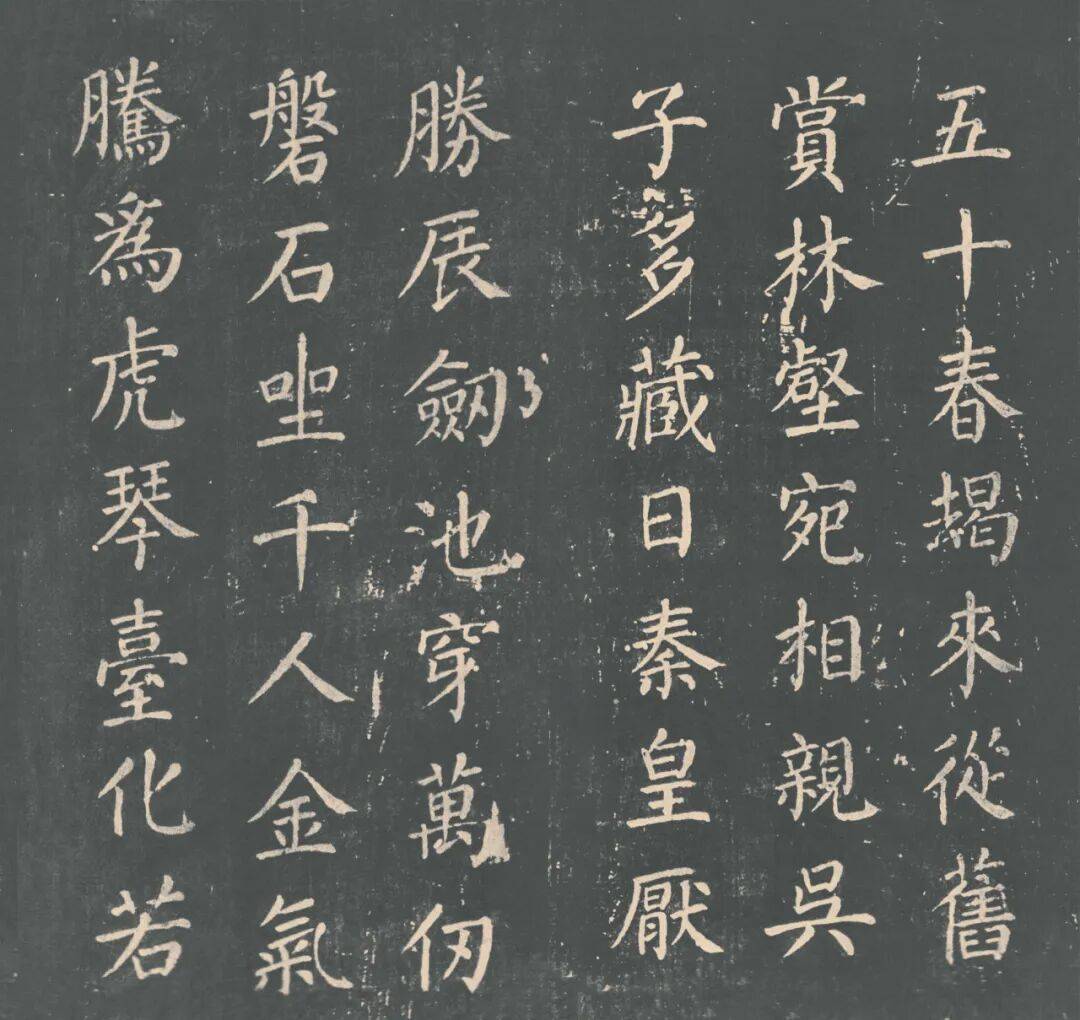 五十春朅來從舊
賞林壑宛相親吳
子多藏日秦皇厭
勝辰劒池穿萬仞
磐石坐千人金氣
騰爲虎琴臺化若